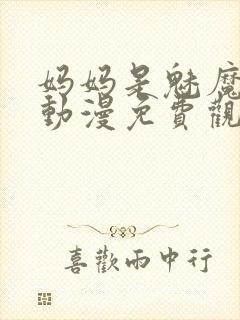 妈妈是魅魔
動漫免費觀
喜歡雨中行